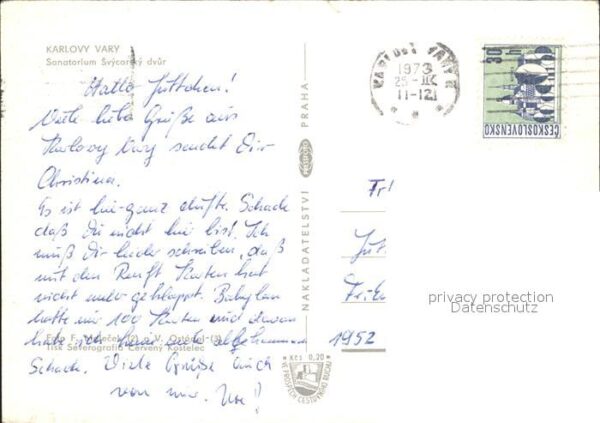 KARLOVY VARY
Sanatorium Švýcarský dvůr
Hallo Juttchen!
Viele liebe Grüße aus
Karlovy Vary sendet Dir
Christina.
Es ist hier ganz dufte. Schade
daß Du nicht hier bist! Ich
muß Dir leider schreiben, daß
mit den Renft Karten hat
nicht mehr geklappt. Babylon
hatte nur 100 Karten und davon
hatte ich
Schade. Viele Grüße auch
von mir.
Foto F.
Tisk Severografia Červený Kostelec
NAKLADATELSTVÍ
PRAHA
Kčs 0,20
KARLOVY VARY
1973
11-12
30
h
ČESKOSLOVENSKO
1952
privacy protection
Datenschutz